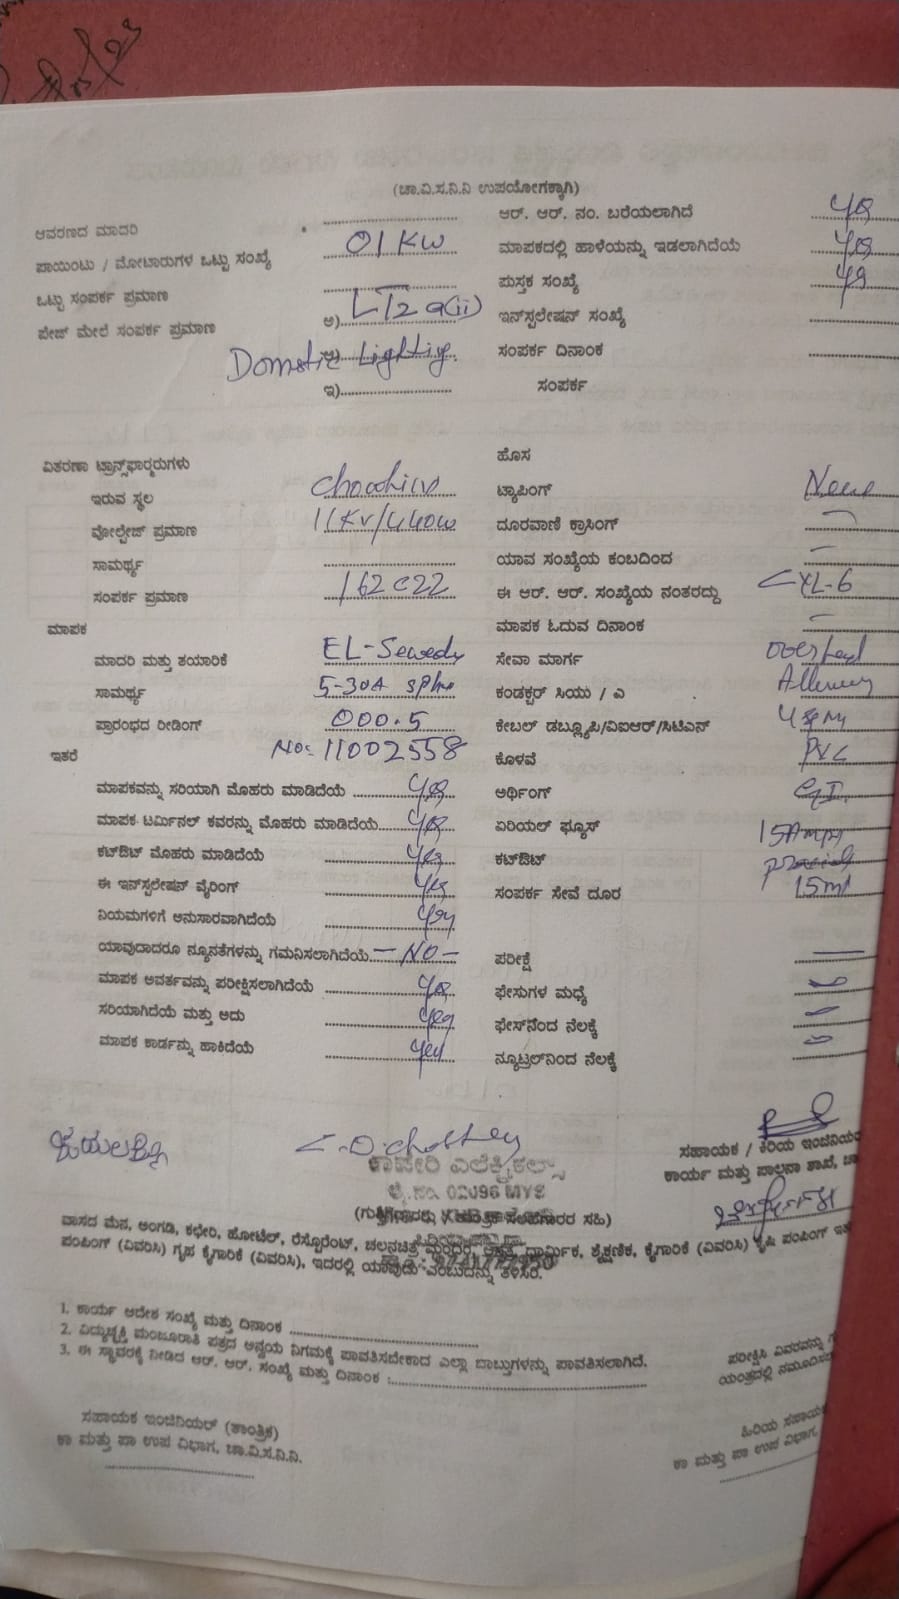 (ಚಾ.ವಿ.ಸ.ನಿ.ನಿ ಉಪಯೋಗಕ್ಕಾಗಿ)
ಆವರಣದ ಮಾದರಿ
ಪಾಯಿಂಟು / ಮೋಟಾರುಗಳ ಒಟ್ಟು ಸಂಖ್ಯೆ 01 KW
ಒಟ್ಟು ಸಂಪರ್ಕ ಪ್ರಮಾಣ
ಪೇಜ್ ಮೇಲೆ ಸಂಪರ್ಕ ಪ್ರಮಾಣ ಅ) LT2 a(ii)
Domstic Lighting
ಇ)
ಆರ್. ಆರ್. ನಂ. ಬರೆಯಲಾಗಿದೆ yes
ಮಾಪಕದಲ್ಲಿ ಹಾಳೆಯನ್ನು ಇಡಲಾಗಿದೆಯೆ yes
ಪುಸ್ತಕ ಸಂಖ್ಯೆ
ಇನ್‌ಸ್ಟಲೇಷನ್ ಸಂಖ್ಯೆ
ಸಂಪರ್ಕ ದಿನಾಂಕ
ಸಂಪರ್ಕ
ವಿತರಣಾ ಟ್ರಾನ್ಸ್‌ಫಾರ್ಮರುಗಳು
ಇರುವ ಸ್ಥಲ
ವೋಲ್ಟೇಜ್ ಪ್ರಮಾಣ 11KV/440
ಸಾಮರ್ಥ್ಯ
ಸಂಪರ್ಕ ಪ್ರಮಾಣ 162C22
ಮಾಪಕ
ಮಾದರಿ ಮತ್ತು ತಯಾರಿಕೆ EL-Sewedy
ಸಾಮರ್ಥ್ಯ 5-30A
ಪ್ರಾರಂಭದ ರೀಡಿಂಗ್ 000.5
ಇತರೆ No: 11002558
ಮಾಪಕವನ್ನು ಸರಿಯಾಗಿ ಮೊಹರು ಮಾಡಿದೆಯೆ yes
ಮಾಪಕ ಟರ್ಮಿನಲ್ ಕವರನ್ನು ಮೊಹರು ಮಾಡಿದೆಯೆ yes
ಕಟ್‌ಔಟ್ ಮೊಹರು ಮಾಡಿದೆಯೆ yes
ಈ ಇನ್‌ಸ್ಟಲೇಷನ್ ವೈರಿಂಗ್ yes
ನಿಯಮಗಳಿಗೆ ಅನುಸಾರವಾಗಿದೆಯೆ yes
ಯಾವುದಾದರೂ ನ್ಯೂನತೆಗಳನ್ನು ಗಮನಿಸಲಾಗಿದೆಯೆ - NO -
ಮಾಪಕ ಆವರ್ತವನ್ನು ಪರೀಕ್ಷಿಸಲಾಗಿದೆಯೆ yes
ಸರಿಯಾಗಿದೆಯೆ ಮತ್ತು ಅದು yes
ಮಾಪಕ ಕಾರ್ಡನ್ನು ಹಾಕಿದೆಯೆ yes
ಹೊಸ
ಟ್ಯಾಪಿಂಗ್ New
ದೂರವಾಣಿ ಕ್ರಾಸಿಂಗ್ -
ಯಾವ ಸಂಖ್ಯೆಯ ಕಂಬದಿಂದ -
ಈ ಆರ್. ಆರ್. ಸಂಖ್ಯೆಯ ನಂತರದ್ದು CXL-6
ಮಾಪಕ ಓದುವ ದಿನಾಂಕ -
ಸೇವಾ ಮಾರ್ಗ overhead
ಕಂಡಕ್ಟರ್ ಸಿಯು / ಎ
ಕೇಬಲ್ ಡಬ್ಲ್ಯೂಪಿ/ವಿಐಆರ್/ಸಿಟಿಎಸ್
ಕೊಳವೆ PVC
ಅರ್ಥಿಂಗ್ G.I.
ಏರಿಯಲ್ ಫ್ಯೂಸ್ 15Amps
ಕಟ್‌ಔಟ್
ಸಂಪರ್ಕ ಸೇವೆ ದೂರ 15mt
ಪರೀಕ್ಷೆ
ಫೇಸುಗಳ ಮಧ್ಯೆ
ಫೇಸ್‌ನೆಂದ ನೆಲಕ್ಕೆ
ನ್ಯೂಟ್ರಲ್‌ನಿಂದ ನೆಲಕ್ಕೆ
ಜಯಲಕ್ಷ್ಮಿ
ಕಾವೇರಿ ಎಲೆಕ್ಟ್ರಿಕಲ್ಸ್
ಲೈ.ನಂ. 02096 MYS
ಸಹಾಯಕ / ಕಿರಿಯ ಇಂಜಿನಿಯರ್
ಕಾರ್ಯ ಮತ್ತು ಪಾಲನಾ ಶಾಖೆ, ಚಾ
ವಾಸದ ಮನೆ, ಅಂಗಡಿ, ಕಛೇರಿ, ಹೋಟೆಲ್, ರೆಸ್ಟೊರೆಂಟ್, ಚಲನಚಿತ್ರ ಮಂದಿರ, ಆಸ್ಪತ್ರೆ, ಧಾರ್ಮಿಕ, ಶೈಕ್ಷಣಿಕ, ಕೈಗಾರಿಕೆ (ವಿವರಿಸಿ) ಕೃಷಿ ಪಂಪಿಂಗ್ ಇತ
ಪಂಪಿಂಗ್ (ವಿವರಿಸಿ) ಗೃಹ ಕೈಗಾರಿಕೆ (ವಿವರಿಸಿ), ಇದರಲ್ಲಿ ಯಾವುದು ಎಂಬುದನ್ನು ತಿಳಿಸಿರಿ.
1. ಕಾರ್ಯ ಆದೇಶ ಸಂಖ್ಯೆ ಮತ್ತು ದಿನಾಂಕ
2. ವಿದ್ಯುಚ್ಛಕ್ತಿ ಮಂಜೂರಾತಿ ಪತ್ರದ ಅನ್ವಯ ನಿಗಮಕ್ಕೆ ಪಾವತಿಸಬೇಕಾದ ಎಲ್ಲಾ ಬಾಬ್ತುಗಳನ್ನು ಪಾವತಿಸಲಾಗಿದೆ.
3. ಈ ಸ್ಥಾವರಕ್ಕೆ ನೀಡಿದ ಆರ್. ಆರ್. ಸಂಖ್ಯೆ ಮತ್ತು ದಿನಾಂಕ :
ಪರೀಕ್ಷಿಸಿ ವಿವರವನ್ನು
ಯಂತ್ರದಲ್ಲಿ ನಮೂದಿಸ
ಸಹಾಯಕ ಇಂಜಿನಿಯರ್ (ತಾಂತ್ರಿಕ)
ಕಾ ಮತ್ತು ಪಾ ಉಪ ವಿಭಾಗ, ಚಾ.ವಿ.ಸ.ನಿ.ನಿ.
ಹಿರಿಯ ಸಹಾಯಕ
ಕಾ ಮತ್ತು ಪಾ ಉಪ ವಿಭಾಗ,